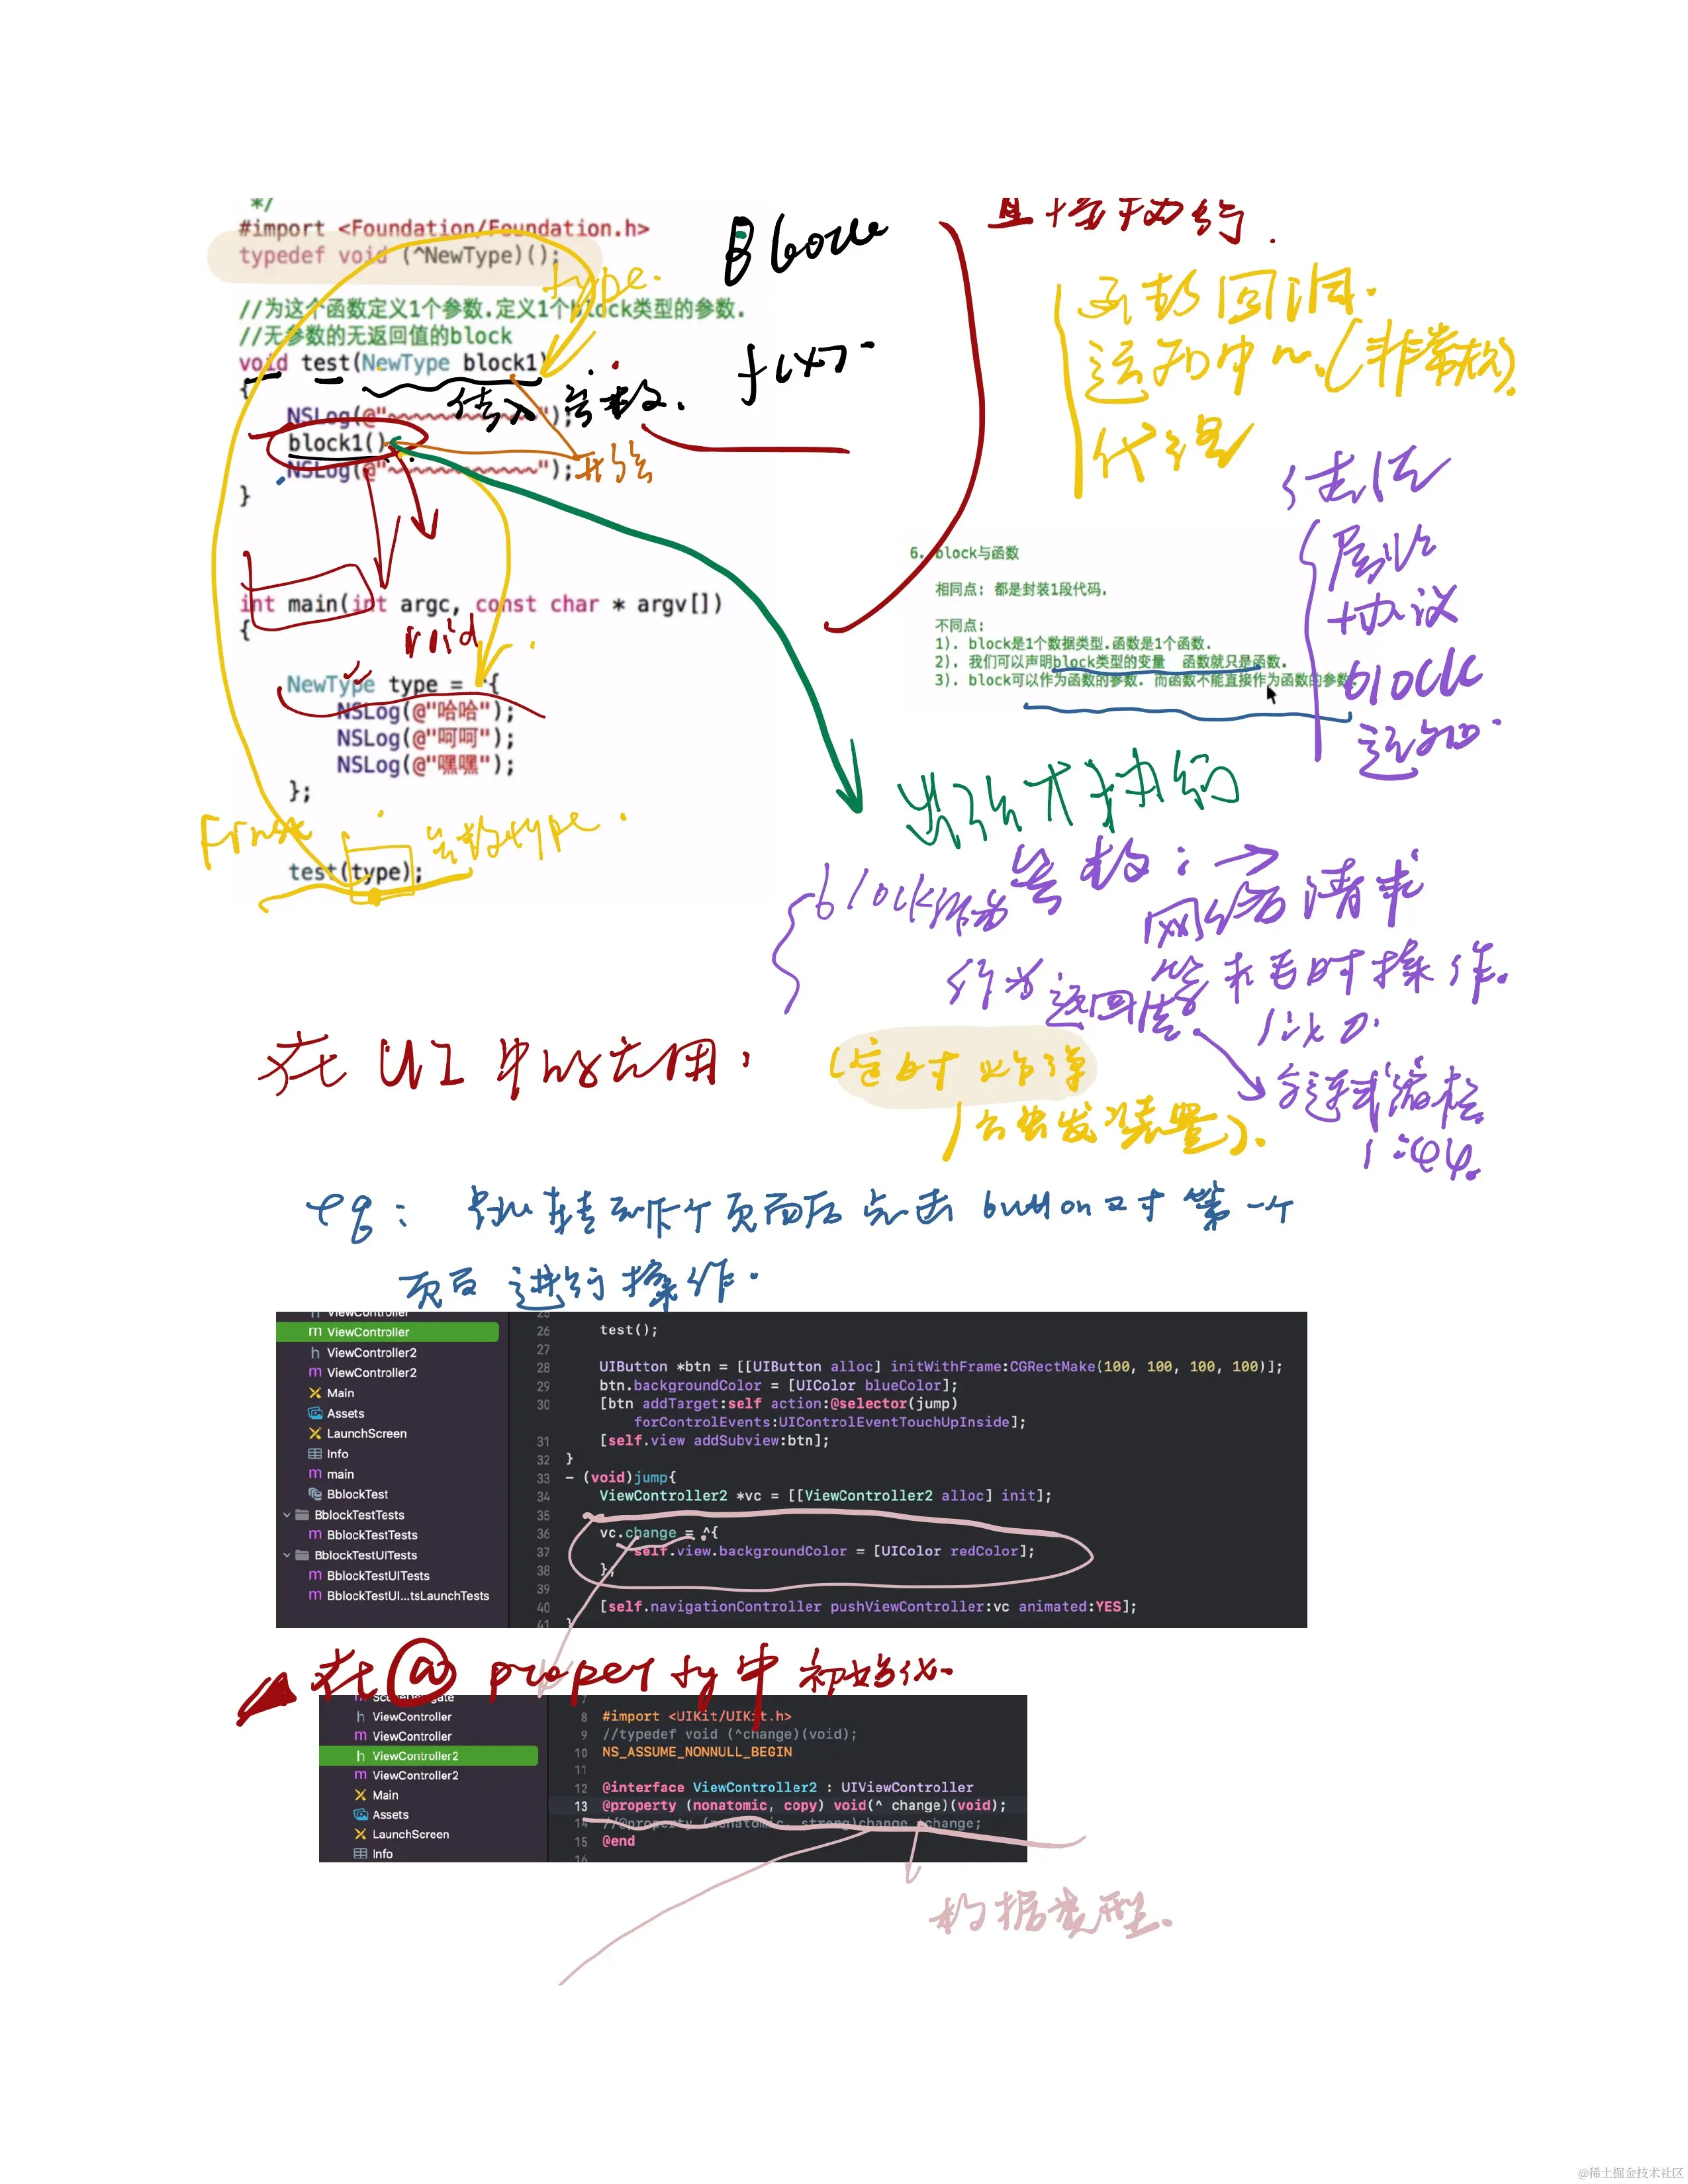 */
#import <Foundation/Foundation.h>
typedef void (^NewType)();
//为这个函数定义1个参数.定义1个block类型的参数.
//无参数的无返回值的block
void test(NewType block1)
{
NSLog(@"~~~~~~~~~~~~~");
block1();
NSLog(@"~~~~~~~~~~~~~");
}
int main(int argc, const char * argv[])
{
NewType type = ^{
NSLog(@"哈哈");
NSLog(@"呵呵");
NSLog(@"嘿嘿");
};
test(type);
type.
传入参数.
void
参数type.
直接执行.
函数回调.
通知中心(非常松)
代理
传值
属性
协议
block
通知.
6. block与函数
相同点: 都是封装1段代码.
不同点:
1). block是1个数据类型.函数是1个函数.
2). 我们可以声明block类型的变量 函数就只是函数.
3). block可以作为函数的参数. 而函数不能直接作为函数的参数.
block作为参数: →
网络请求
等耗时操作.
作为返回值.
链式编程
在UI中的应用:
(定时炸弹
触发装置).
eg: 跳转到下个页面后点击button又对第一个
页面进行操作.
ViewController
ViewController
ViewController2
ViewController2
Main
Assets
LaunchScreen
Info
main
BblockTest
BblockTestTests
BblockTestTests
BblockTestUITests
BblockTestUITests
BblockTestUI...tsLaunchTests
25
26 test();
27
28 UIButton *btn = [[UIButton alloc] initWithFrame:CGRectMake(100, 100, 100, 100)];
29 btn.backgroundColor = [UIColor blueColor];
30 [btn addTarget:self action:@selector(jump)
forControlEvents:UIControlEventTouchUpInside];
31 [self.view addSubview:btn];
32 }
33 - (void)jump{
34 ViewController2 *vc = [[ViewController2 alloc] init];
35
36 vc.change = ^{
37 self.view.backgroundColor = [UIColor redColor];
38 };
39
40 [self.navigationController pushViewController:vc animated:YES];
41 }
在@property中初始化.
SceneDelegate
ViewController
ViewController
ViewController2
ViewController2
Main
Assets
LaunchScreen
Info
7
8 #import <UIKit/UIKit.h>
9 //typedef void (^change)(void);
10 NS_ASSUME_NONNULL_BEGIN
11
12 @interface ViewController2 : UIViewController
13 @property (nonatomic, copy) void(^ change)(void);
14 //@property (nonatomic, strong)change change;
15 @end
16
数据类型.
@稀土掘金技术社区